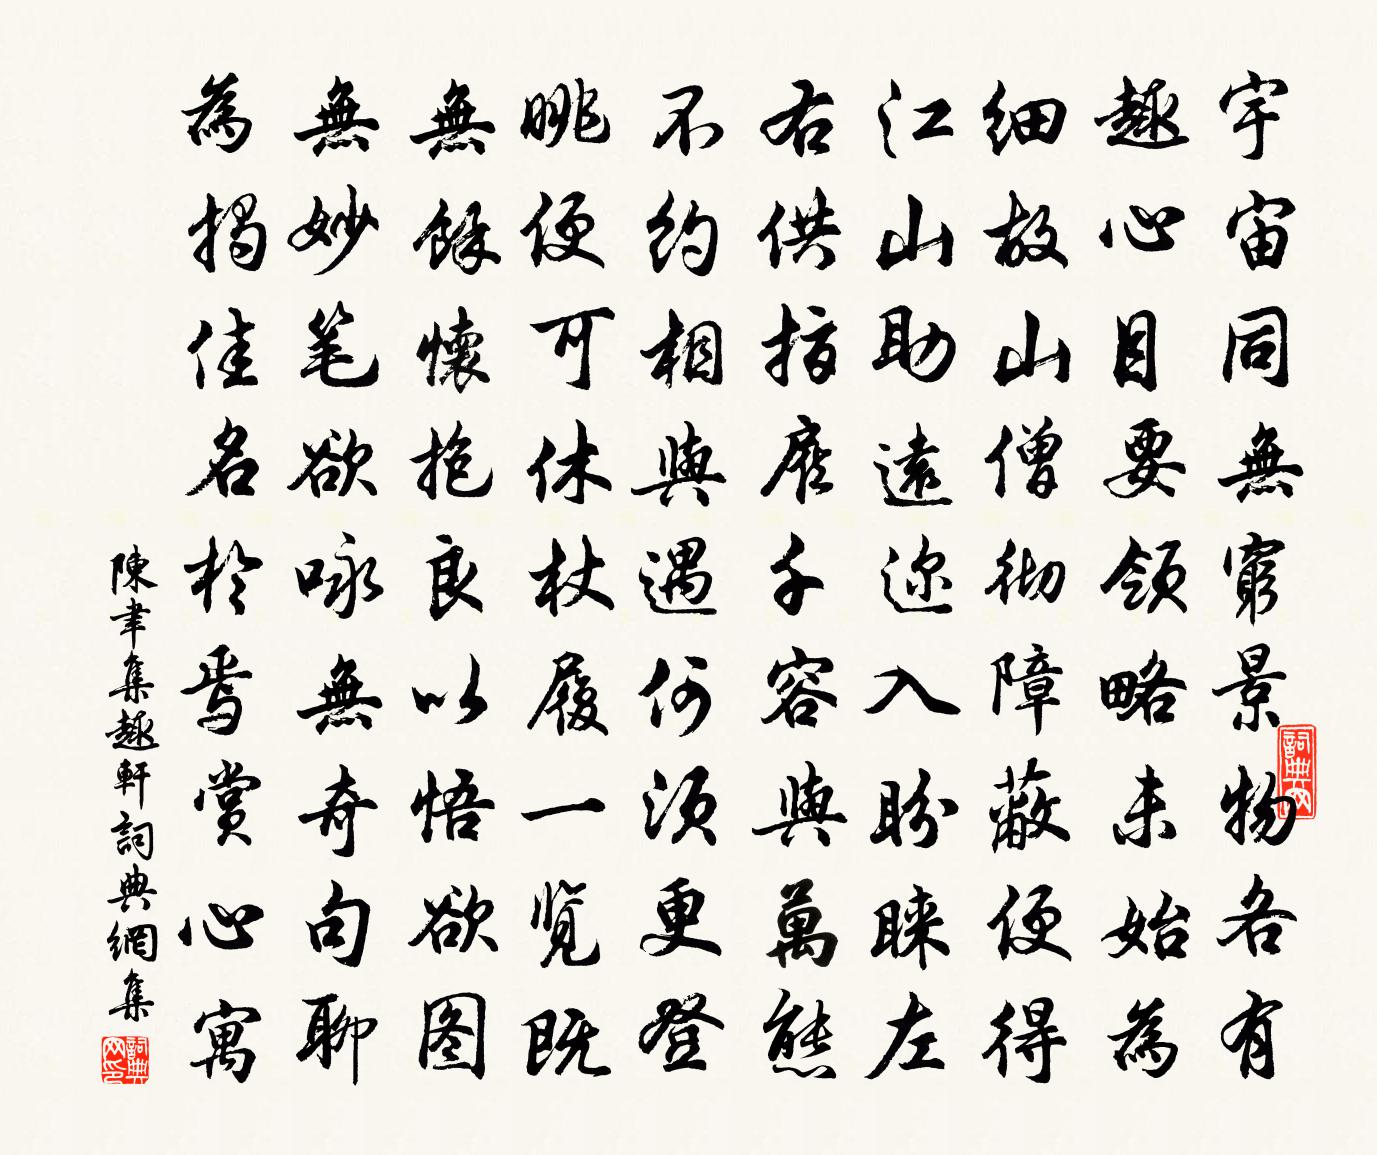 宇宙同無窮景物各有
趣心目要領略未始為
細故山僧彻障蔽便得
江山助遠迩入盼睐左
右供指麾千容與萬態
不約相與遇何須更登
眺便可休杖履一覧既
無餘懷抱良以悟欲图
無妙笔欲咏無奇句聊
為揭佳名於焉賞心寓
陳聿集趣軒詞典網集
詞典网
詞典网印